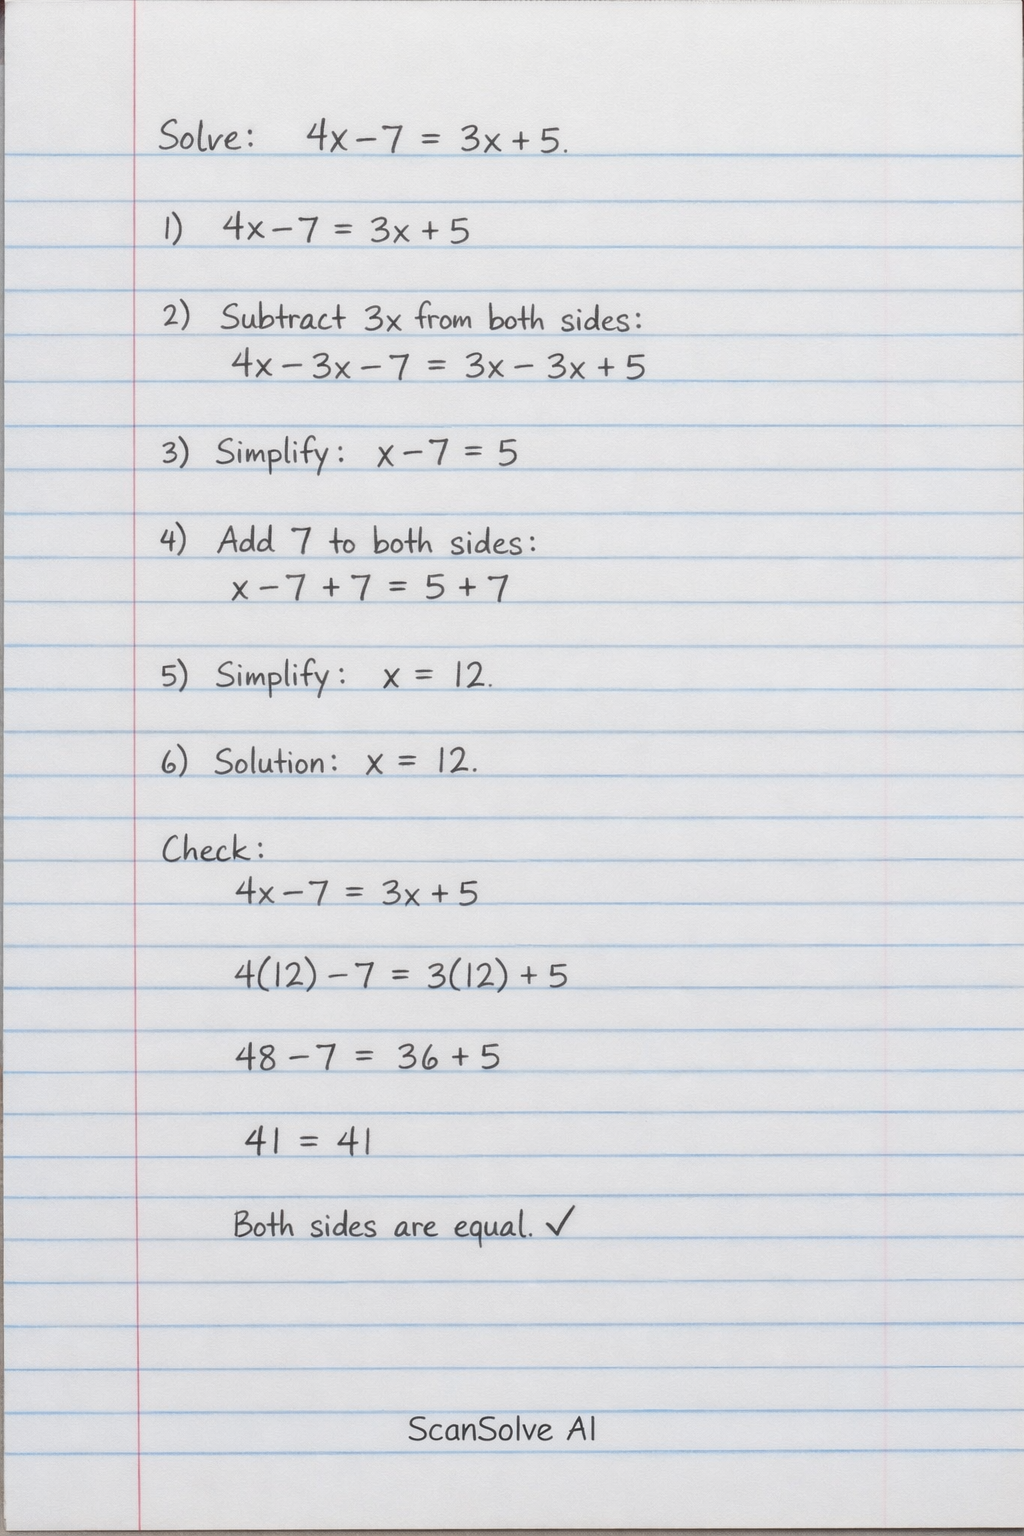 Solve: 4x - 7 = 3x + 5.
1) 4x - 7 = 3x + 5
2) Subtract 3x from both sides:
4x - 3x - 7 = 3x - 3x + 5
3) Simplify: x - 7 = 5
4) Add 7 to both sides:
x - 7 + 7 = 5 + 7
5) Simplify: x = 12.
6) Solution: x = 12.
Check:
4x - 7 = 3x + 5
4(12) - 7 = 3(12) + 5
48 - 7 = 36 + 5
41 = 41
Both sides are equal. ✓
ScanSolve AI